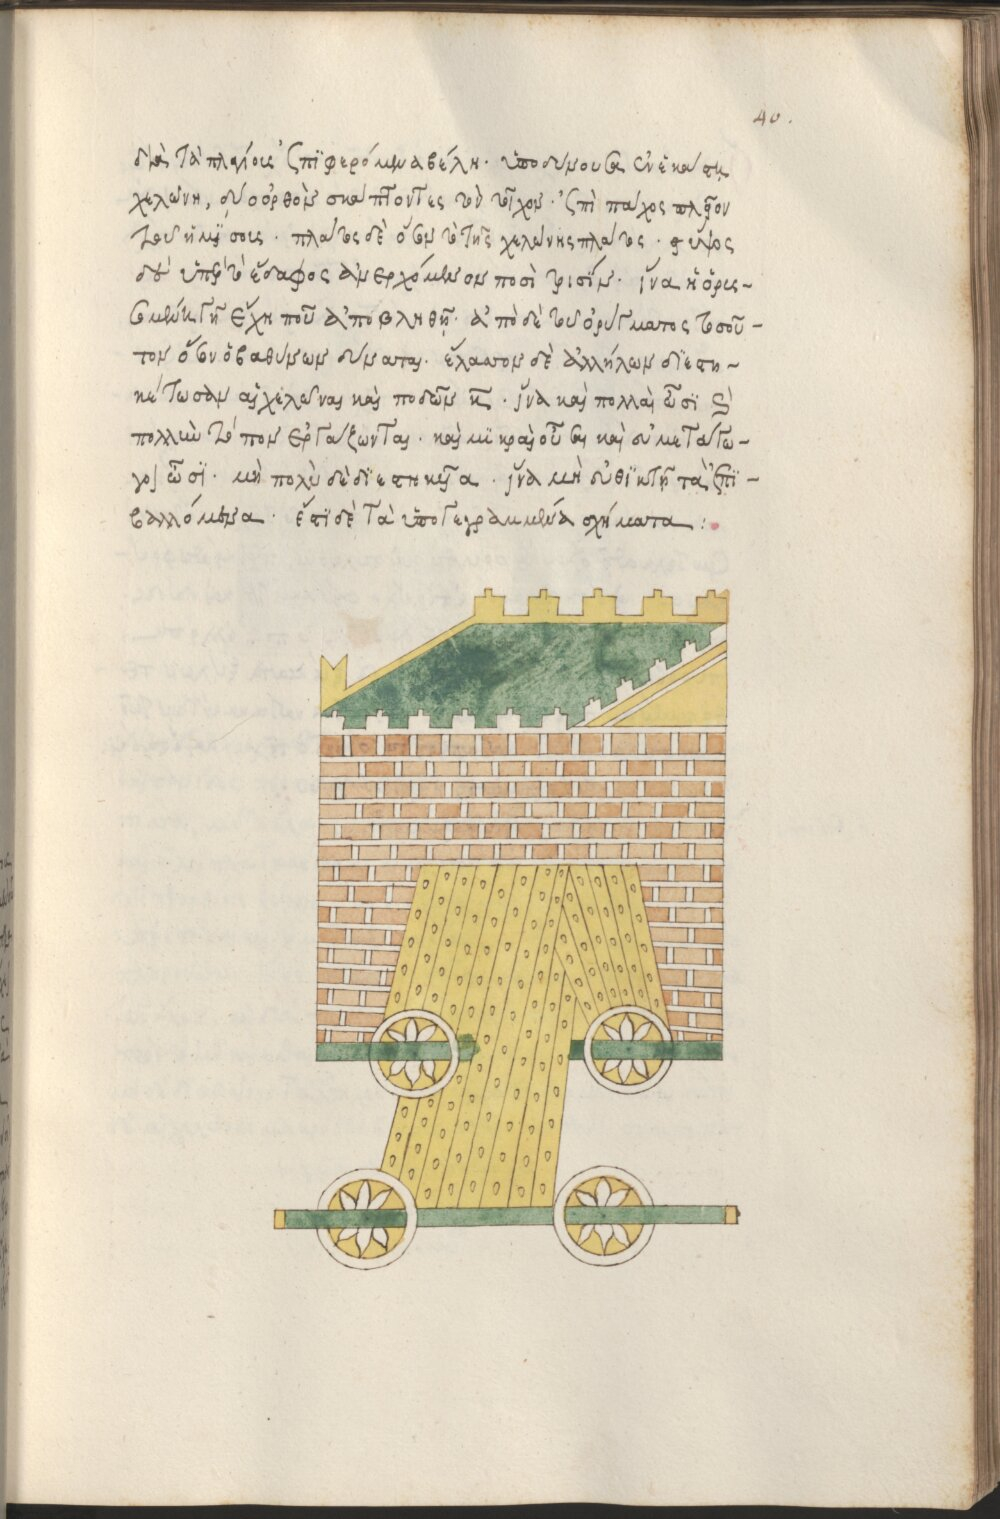 40.
διὰ τὰ πλαγίοις ἐπιφερόμενα βέλη. ὑποδύνουσι ἐν ἑκάστῃ
χελώνῃ, δύο ὀρθὸν σκάπτοντες τὸν τοῖχον. ἐπὶ πάχος πλέον
τοῦ ἡμίσοις. πλάτος δὲ ὅσον τὸ τῆς χελώνης πλάτος. ὕψος
δὲ ὑπὲρ τὸ ἔδαφος ἀνερχόμενον ποσὶ τρισΐν. ἵνα ἡ ὀρισ-
σομένη γῆ ἔχη ποῦ ἀποβληθῆ. ἀπὸ δὲ τοῦ ὀρύγματος τοσοῦ-
τον ὅσον ὁ βαθύνων δύναται. ἔλαττον δὲ ἀλλήλων διεστη-
κέτωσαν αἱ χελώναι καὶ ποδῶν . ἵνα καὶ πολλαὶ ὦσϊ καὶ
πολλὺν τόπον ἐργάζωνται. καὶ μϊκραὶ οὖσαι καὶ εὐμετάγω-
γοι ὦσϊ. μὴ πολὺ δὲ διεστηκυῖα. ἵνα μὴ εὐθϊκτῆ τὰ ἐπϊ-
βαλλόμενα. ἔστϊ δὲ τὰ ὑπογεγραμμένα σχήματα :